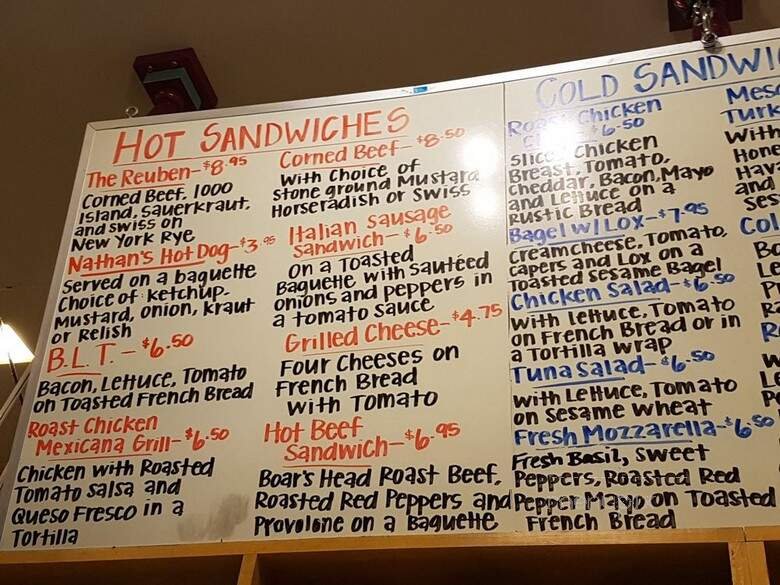 HOT SANDWICHES
The Reuben-$8.95
Corned Beef, 1000
Island, Sauerkraut,
and Swiss on
New York Rye
Nathan's Hot Dog-$3.95
Served on a baguette
Choice of ketchup,
Mustard, onion, kraut
or Relish
B.L.T.-$6.50
Bacon, Lettuce, Tomato
on Toasted French Bread
Roast Chicken
Mexicana Grill-$6.50
Chicken with Roasted
Tomato Salsa and
Queso Fresco in a
Tortilla
Corned Beef-$8.50
With Choice of
Stone ground Mustard
Horseradish or Swiss
Italian Sausage
Sandwich-$6.50
On a Toasted
Baguette with Sautéed
onions and peppers in
a tomato sauce
Grilled Cheese-$4.75
Four Cheeses on
French Bread
With Tomato
Hot Beef
Sandwich-$6.95
Boar's Head Roast Beef,
Roasted Red Peppers and
Provolone on a Baguette
COLD SANDWI
Chicken
6.50
Chicken
Breast, Tomato,
Cheddar, Bacon, Mayo
and Lettuce on a
Rustic Bread
Bagel w/ Lox-$7.95
Creamcheese, Tomato,
Capers and Lox on a
Toasted Sesame Bagel
Chicken Salad-$6.50
With Lettuce, Tomato
on French Bread or in
a Tortilla Wrap
Tuna Salad-$6.50
With Lettuce, Tomato
on Sesame Wheat
Fresh Mozzarella-$6.50
Fresh Basil, Sweet
Peppers, Roasted Red
Pepper Mayo on Toasted
French Bread
Mesq
Turk
With
Hone
Hava
and
Ses
Col